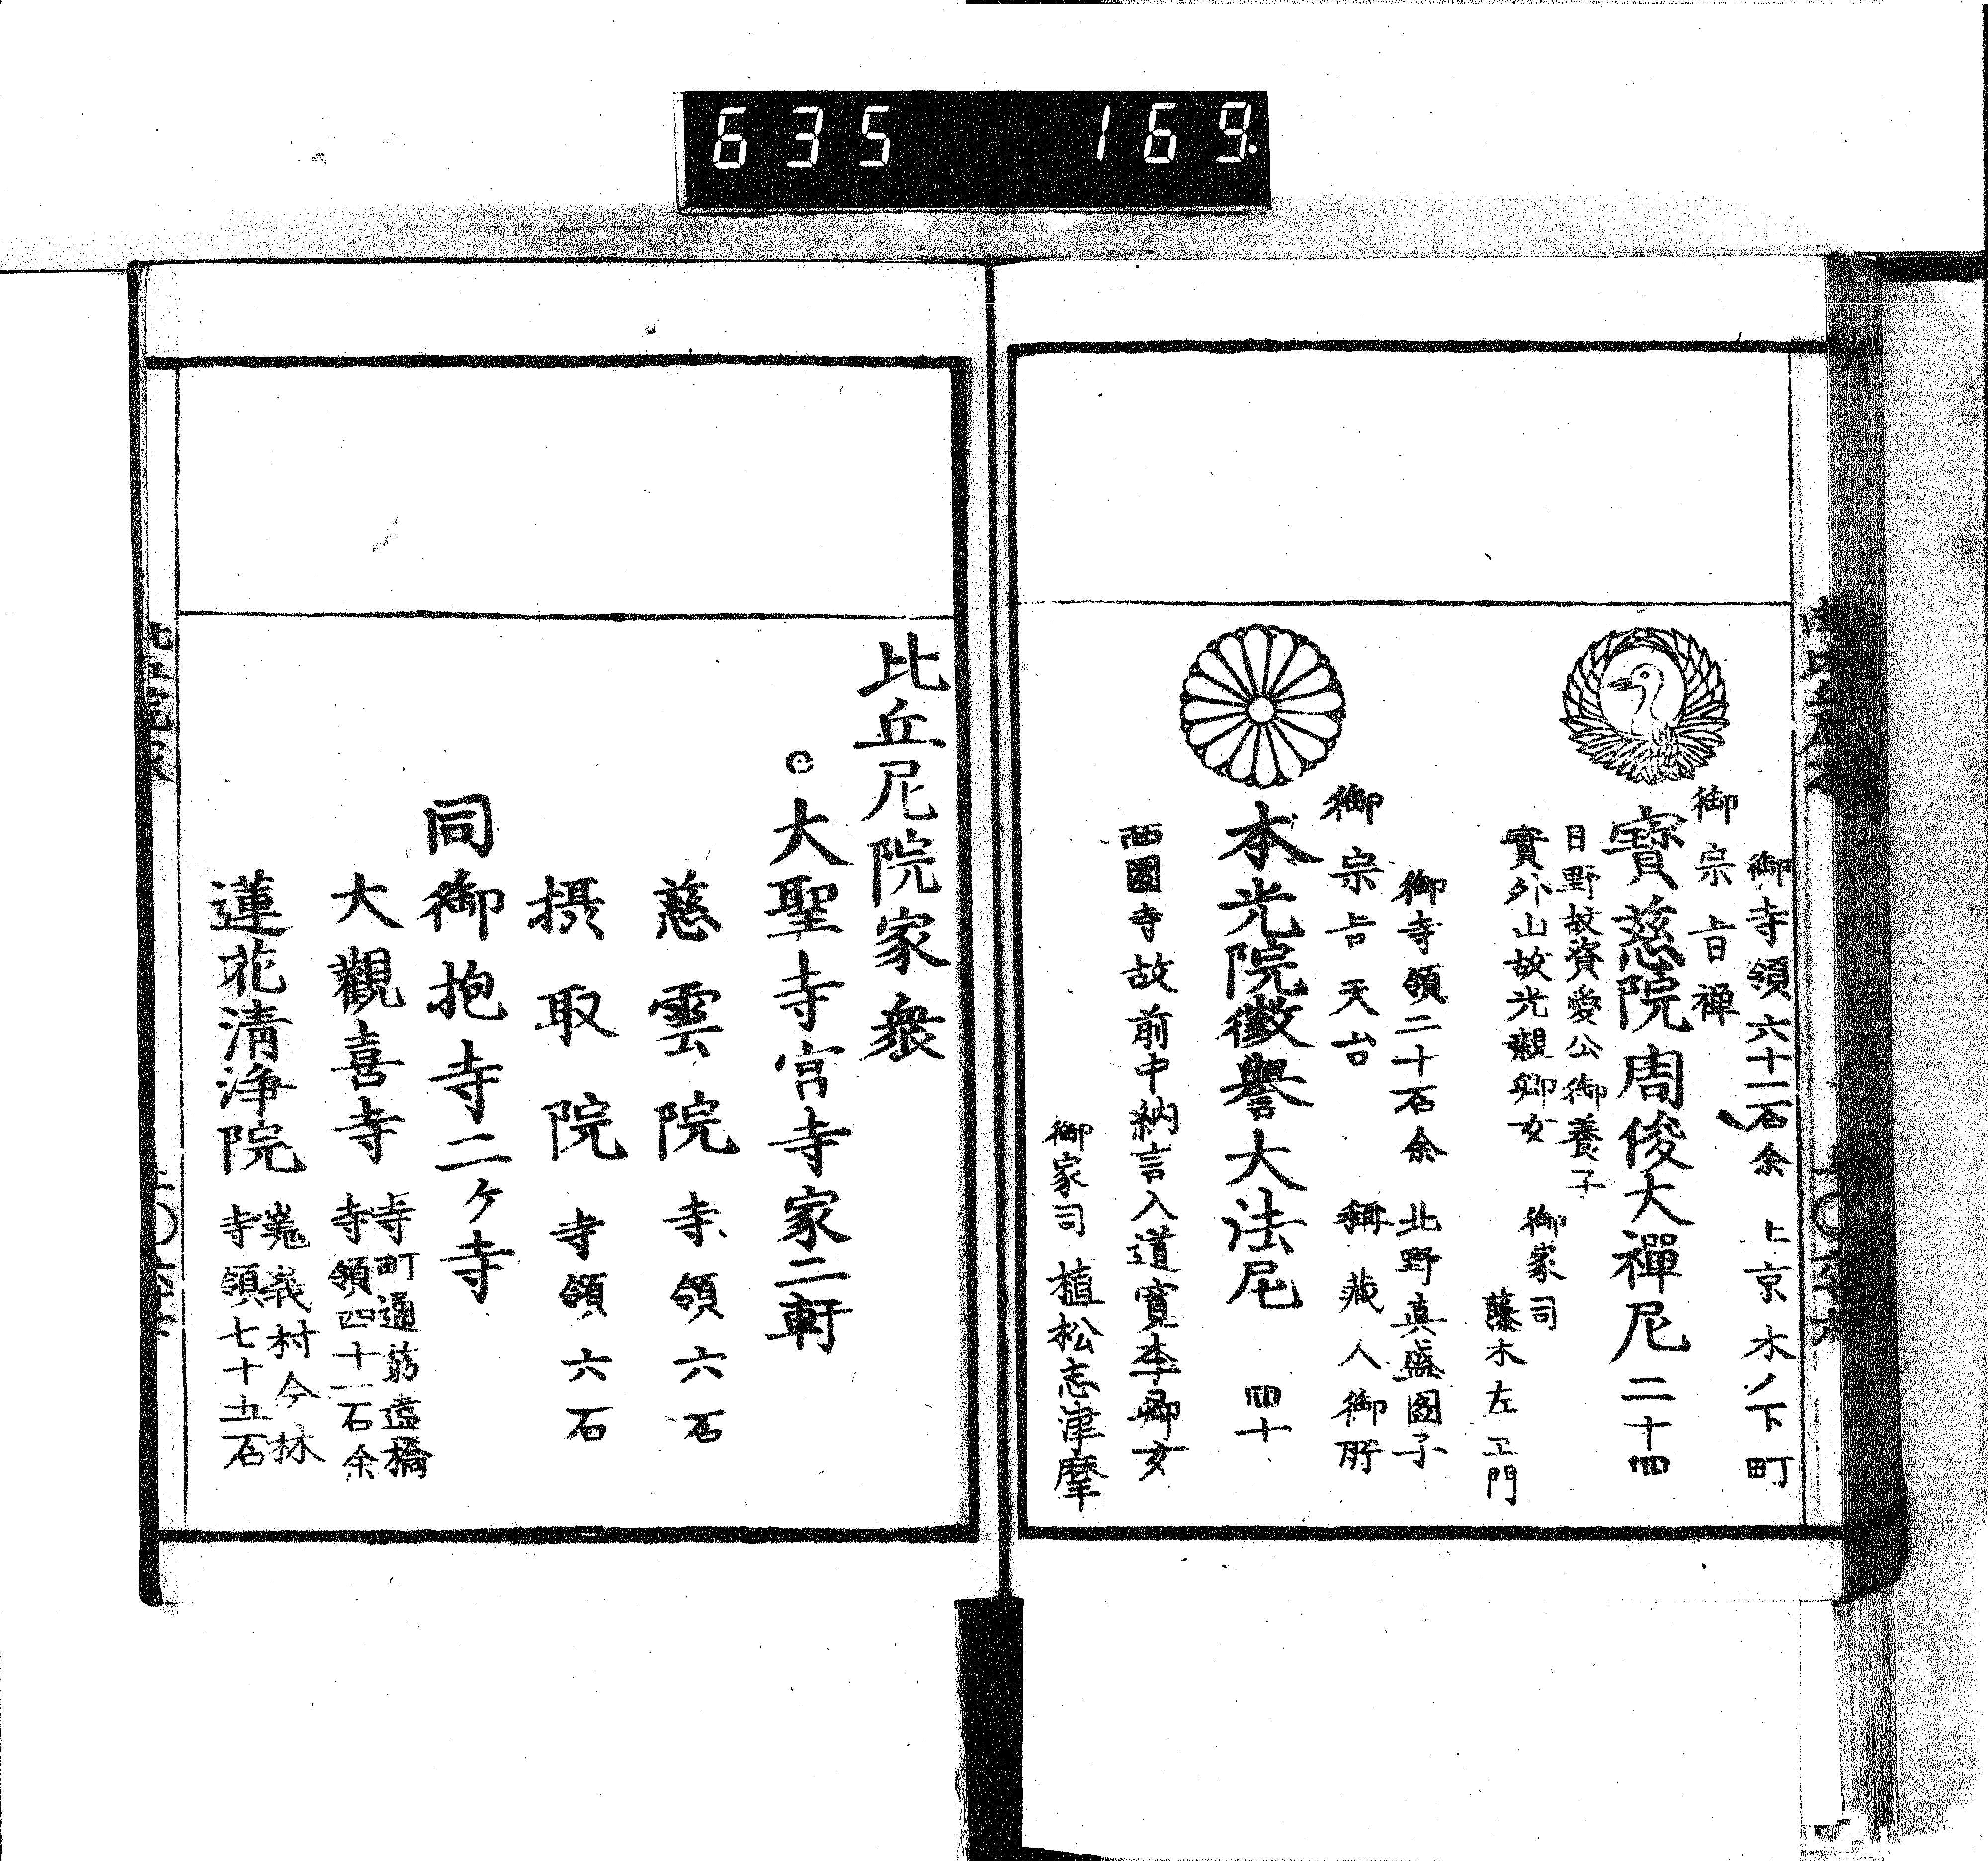 635 169.
御寺領六十二石余 上京木ノ下町
御宗旨禅
寳慈院周俊大禪尼 二十四
日野故資愛公御養子
實外山故光親卿女 御家司
藤木左ヱ門
御寺領二十石余 北野真盛圖子
御宗旨天台 稱蔵人御所
本光院徴譽大法尼 四十
西園寺故前中納言入道寛季卿女
御家司 植松志津摩
比丘尼院家衆
大聖寺宮寺家二軒
慈雲院 寺領六石
摂取院 寺領六石
同御抱寺二ケ寺
大觀喜寺 寺町通 橋
寺領四十一石余
蓮花清浄院 嵯峩村今林
寺領七十五石